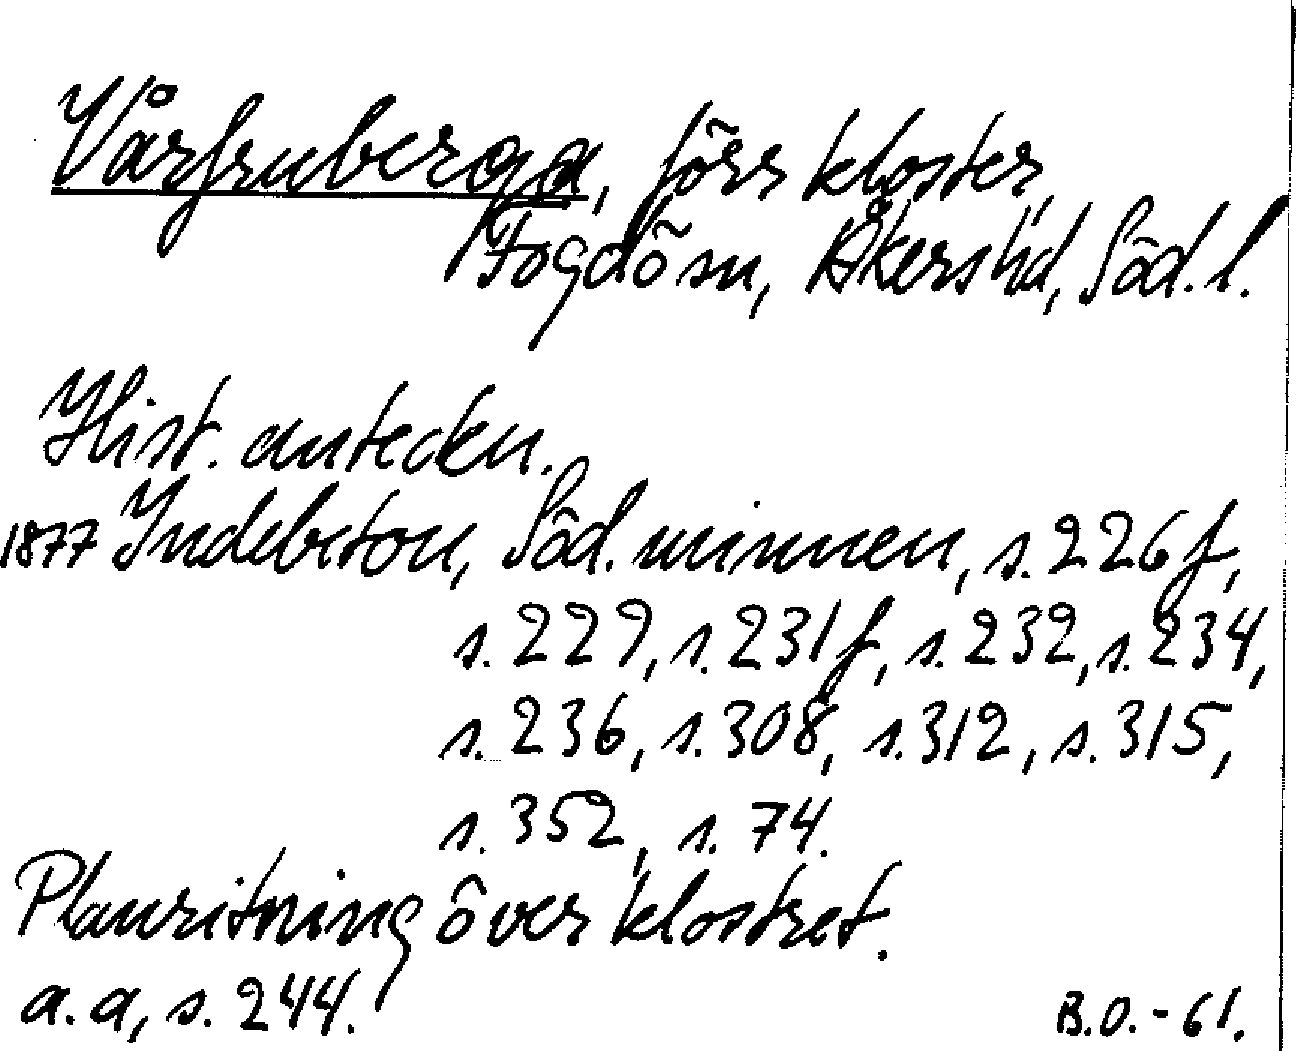 Vårfruberga, förr kloster,
Fogdön, Åkers hd, Söd. l.
Hist. anteckn.
1877 Indebetou, Söd. minnen, s. 226 f,
s. 229, s. 231 f, s. 232, s. 234,
s. 236, s. 308, s. 312, s. 315,
s. 352, s. 74.
Planritning över klostret.
a. a, s. 244.
B.O. - 61.